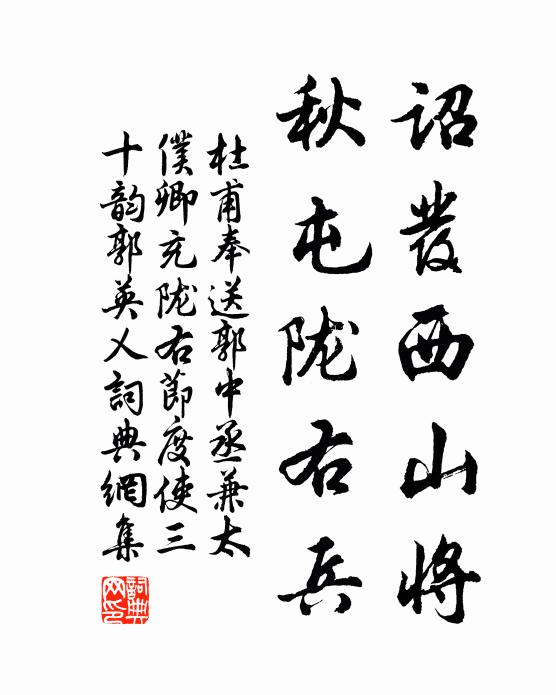 詔發西山將
秋屯陇右兵
杜甫奉送郭中丞兼太
僕卿充陇右節度使三
十韵郭英乂詞典網集
詞典
网印